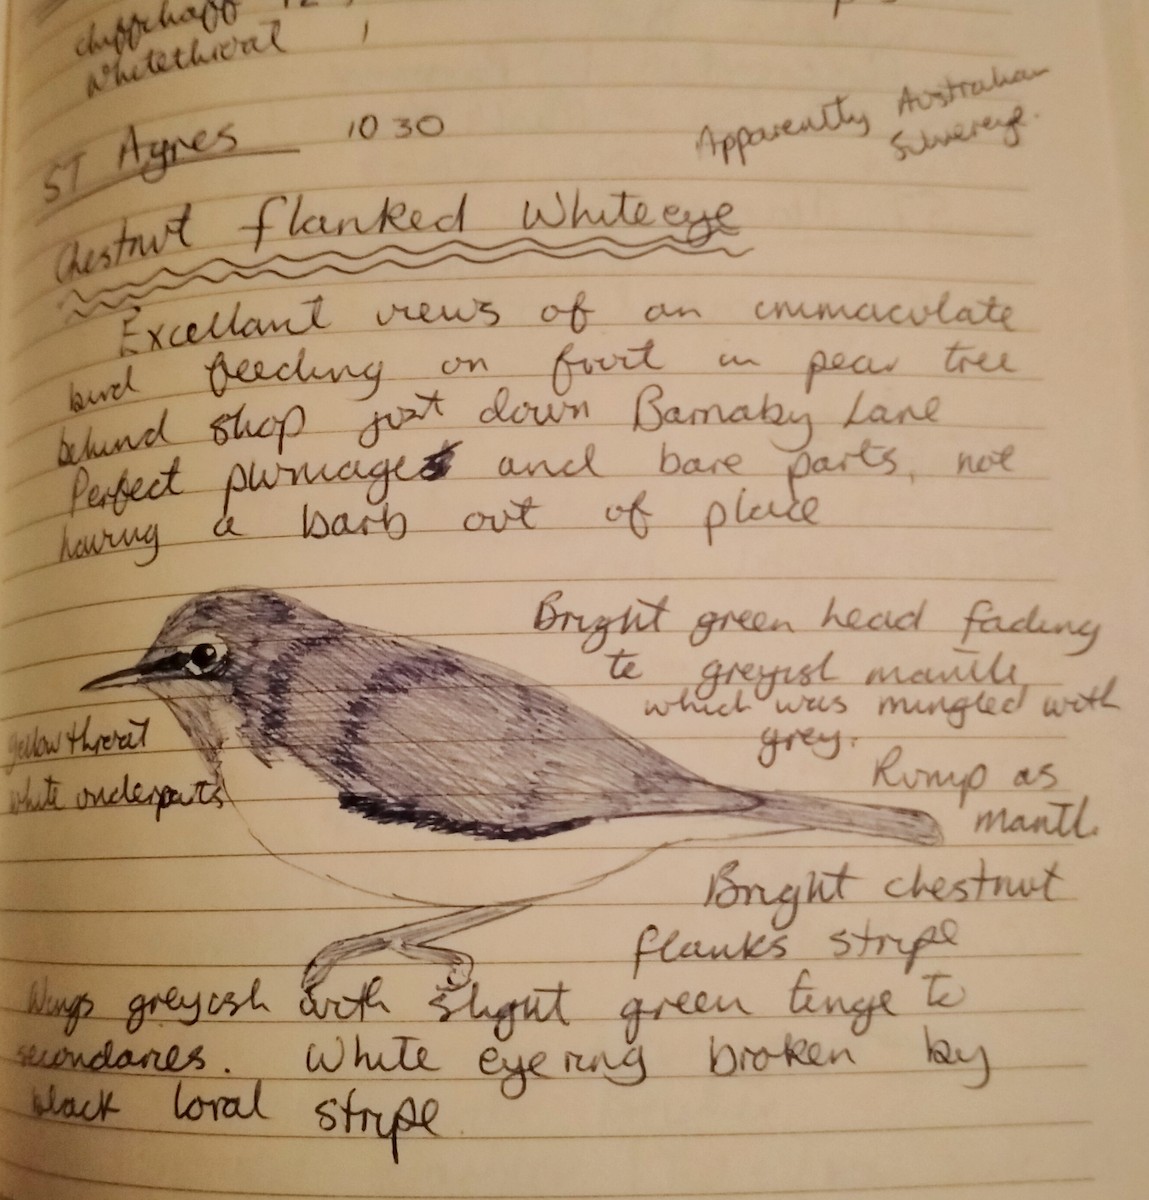 chiffchaff 12
Whitethroat 1
ST Agnes 10 30
Apparently Australian
Silvereye.
Chestnut flanked Whiteeye
Excellant views of an immaculate
bird feeding on fruit in pear tree
behind shop just down Barnaby Lane
Perfect plumage and bare parts, not
having a barb out of place
Bright green head fading
to greyish mantle
which was mingled with
grey.
yellow throat
white underparts
Rump as
mantle
Bright chestnut
flanks stripe
Wings greyish with slight green tinge to
secondaries. White eye ring broken by
black loral stripe